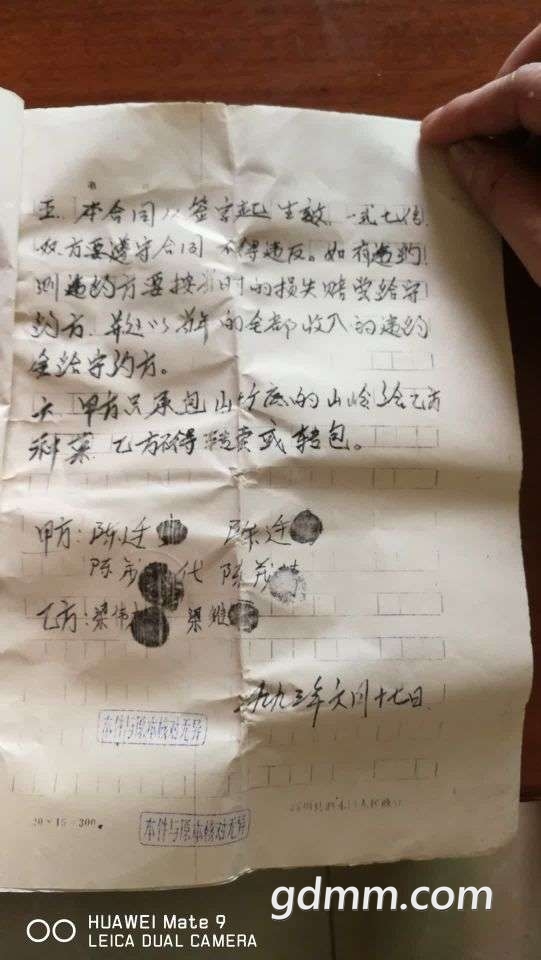 五、本合同从签字起生效，一式七份
双方要遵守合同不得违反。如有违约
则违约方要按当时的损失赔偿给守
约方、并以当年的全部收入的违约
金给守约方。
六、甲方只承包山竹底的山岭给乙方
种菓 乙方不得转卖或转包。
甲方：陈廷 陈廷
陈茂 代 陈茂
乙方：梁伟 梁
一九九三年六月十七日
本件与原本核对无异
20×15=300
本件与原本核对无异
gdmm.com
HUAWEI Mate 9
LEICA DUAL CAMERA